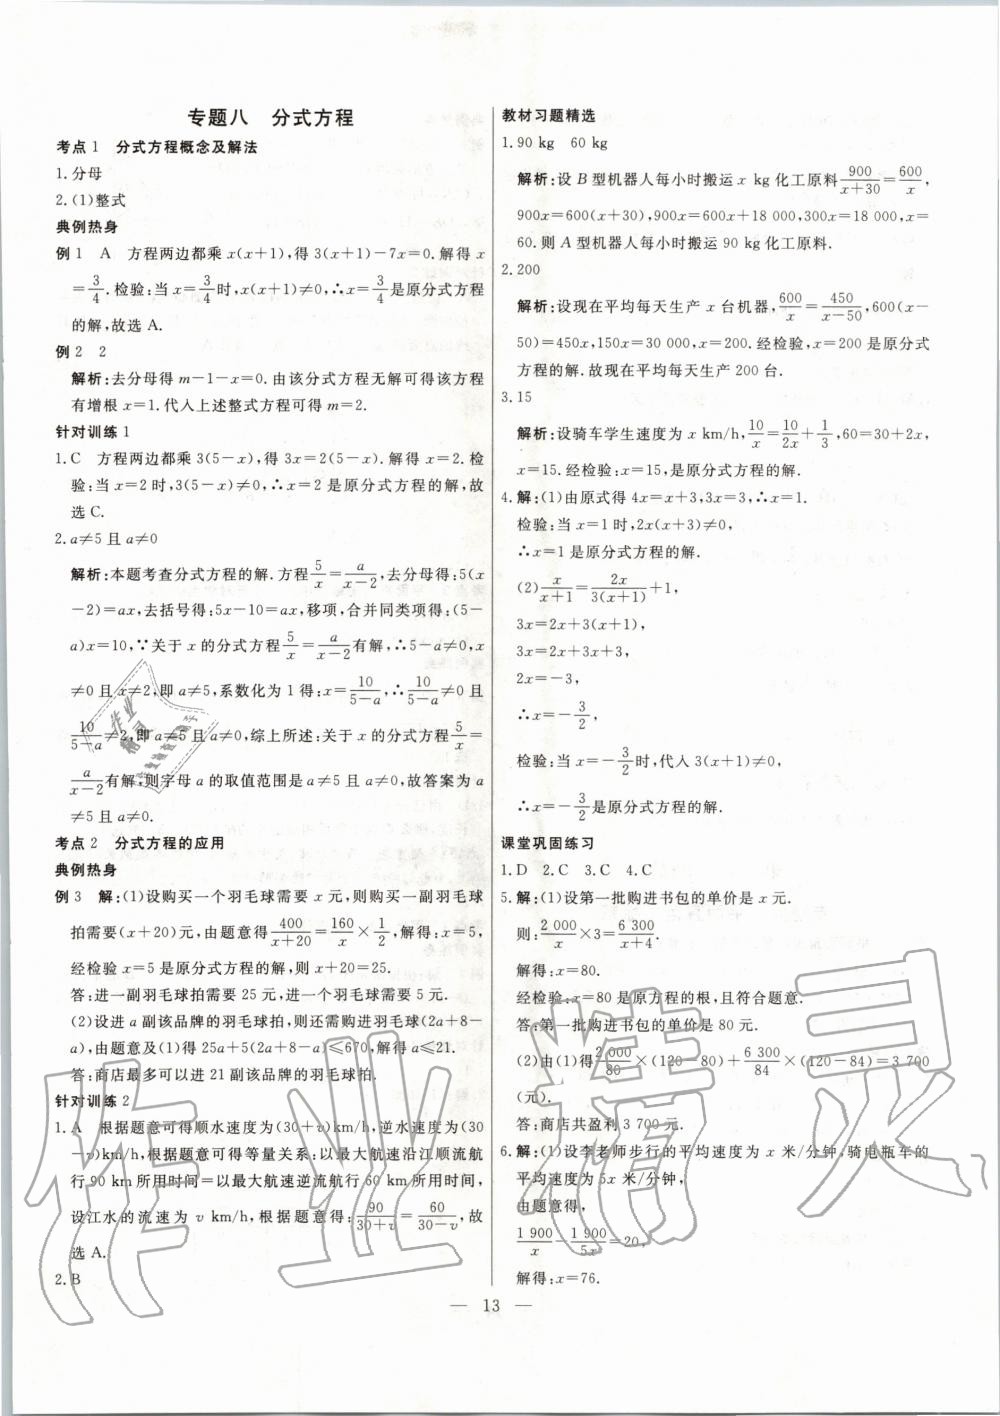 专题八　分式方程
考点1　分式方程概念及解法
1.分母
2.(1)整式
典例热身
例1　A　方程两边都乘x(x+1),得3(x+1)-7x=0.解得x
=3/4.检验:当x=3/4时,x(x+1)≠0,∴x=3/4是原分式方程
的解,故选A.
例2　2
解析:去分母得m-1-x=0.由该分式方程无解可得该方程
有增根x=1.代入上述整式方程可得m=2.
针对训练1
1.C　方程两边都乘3(5-x),得3x=2(5-x).解得x=2.检
验:当x=2时,3(5-x)≠0,∴x=2是原分式方程的解,故
选C.
2.a≠5且a≠0
解析:本题考查分式方程的解.方程5/x=a/(x-2),去分母得:5(x
-2)=ax,去括号得:5x-10=ax,移项,合并同类项得:(5-
a)x=10,∵关于x的分式方程5/x=a/(x-2)有解,∴5-a≠0,x
≠0且x≠2,即a≠5,系数化为1得:x=10/(5-a),∴10/(5-a)≠0且
10/(5-a)≠2,即a≠5且a≠0,综上所述:关于x的分式方程5/x=
a/(x-2)有解,则字母a的取值范围是a≠5且a≠0,故答案为a
≠5且a≠0.
考点2　分式方程的应用
典例热身
例3　解:(1)设购买一个羽毛球需要x元,则购买一副羽毛球
拍需要(x+20)元,由题意得400/(x+20)=160/x×1/2,解得:x=5,
经检验x=5是原分式方程的解,则x+20=25.
答:进一副羽毛球拍需要25元,进一个羽毛球需要5元.
(2)设进a副该品牌的羽毛球拍,则还需购进羽毛球(2a+8-
a),由题意及(1)得25a+5(2a+8-a)≤670,解得a≤21.
答:商店最多可以进21副该品牌的羽毛球拍.
针对训练2
1.A　根据题意可得顺水速度为(30+v)km/h,逆水速度为(30
-v)km/h,根据题意可得等量关系:以最大航速沿江顺流航
行90 km所用时间=以最大航速逆流航行60 km所用时间,
设江水的流速为v km/h,根据题意得:90/(30+v)=60/(30-v),故
选A.
2.B
教材习题精选
1.90 kg　60 kg
解析:设B型机器人每小时搬运x kg化工原料900/(x+30)=600/x,
900x=600(x+30),900x=600x+18 000,300x=18 000,x=
60.则A型机器人每小时搬运90 kg化工原料.
2.200
解析:设现在平均每天生产x台机器,600/x=450/(x-50),600(x-
50)=450x,150x=30 000,x=200.经检验,x=200是原分式
方程的解.故现在平均每天生产200台.
3.15
解析:设骑车学生速度为x km/h,10/x=10/2x+1/3,60=30+2x,
x=15.经检验:x=15,是原分式方程的解.
4.解:(1)由原式得4x=x+3,3x=3,∴x=1.
检验:当x=1时,2x(x+3)≠0,
∴x=1是原分式方程的解.
(2)x/(x+1)=2x/3(x+1)+1,
3x=2x+3(x+1),
3x=2x+3x+3,
2x=-3,
∴x=-3/2,
检验:当x=-3/2时,代入3(x+1)≠0,
∴x=-3/2是原分式方程的解.
课堂巩固练习
1.D　2.C　3.C　4.C
5.解:(1)设第一批购进书包的单价是x元.
则:2 000/x×3=6 300/(x+4).
解得:x=80.
经检验:x=80是原方程的根,且符合题意.
答:第一批购进书包的单价是80元.
(2)由(1)得2 000/80×(120-80)+6 300/84×(120-84)=3 700
(元).
答:商店共盈利3 700元.
6.解:(1)设李老师步行的平均速度为x米/分钟,骑电瓶车的
平均速度为5x米/分钟,
由题意得,
1 900/x-1 900/5x=20,
解得:x=76.
— 13 —
作业精灵